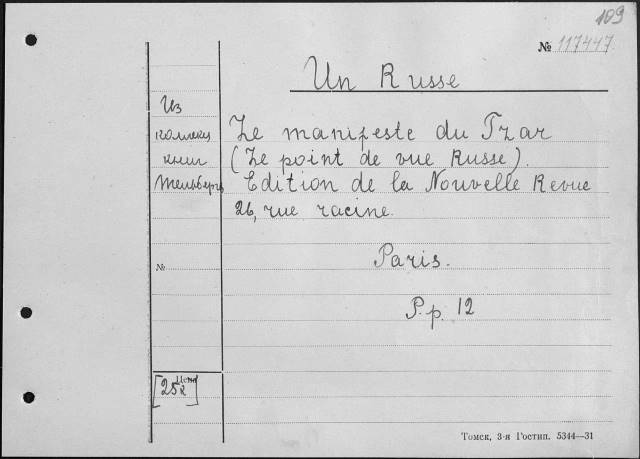 109
№ 117447
Un Russe
Из
коллекц
книг
Тельберга
Le manifeste du Tzar
(Le point de vue Russe).
Edition de la Nouvelle Revue
26, rue racine.
№
Paris.
P.p. 12
Цена
[25к]
Томск, 3-я Гостип. 5344—31